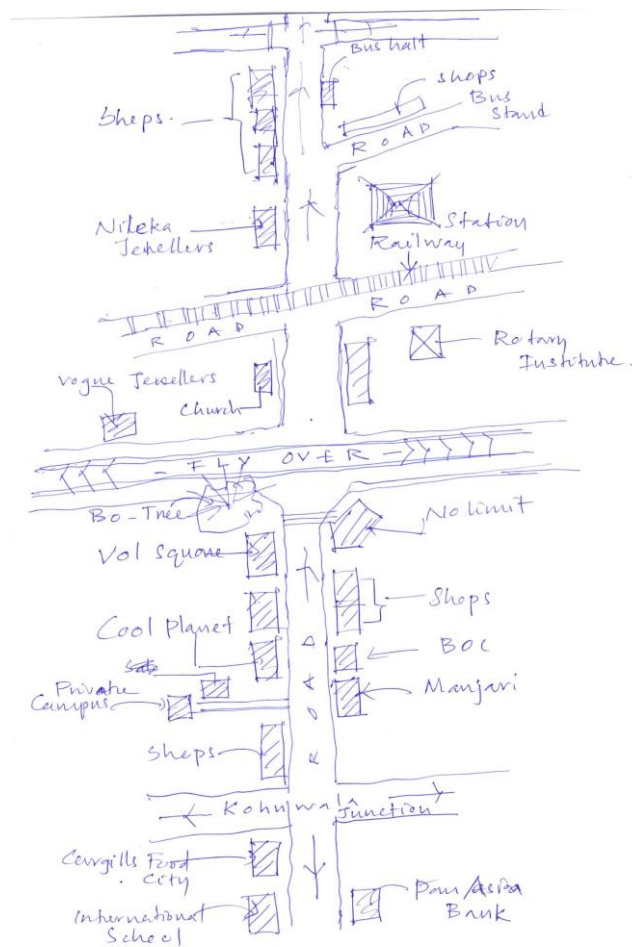 Bus halt
shops
Bus
Stand
Shops
ROAD
Nileka
Jewellers
Station
Railway
ROAD
ROAD
Rotary
Institute
Vogue Jewellers
Church
FLY OVER
Bo-Tree
No limit
Vol Square
Shops
Cool Planet
BOC
ROAD
Private
Campus
Manjari
Shops
Kohuwala Junction
Cargills Food
City
Pan Asia
Bank
International
School